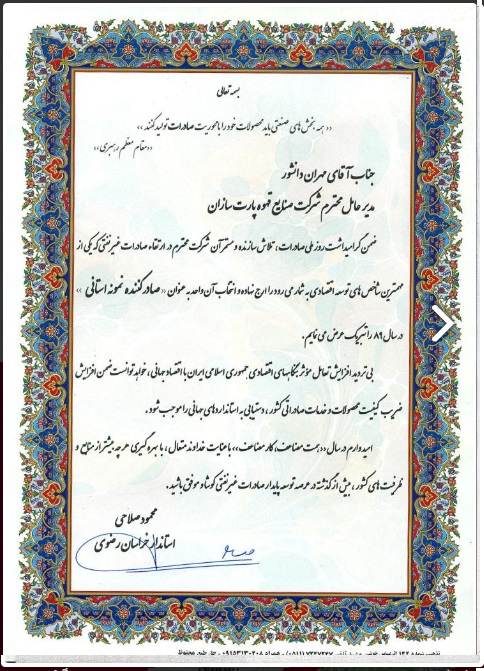 بسمه تعالی
«همه بخش های صنعتی باید محصولات خود را با محوریت صادرات تولید کنند»
«مقام معظم رهبری»
جناب آقای مهران دانشور
مدیر عامل محترم شرکت صنایع قهوه پارت سازان
ضمن گرامیداشت روز ملی صادرات، تلاش سازنده و مستمر آن شرکت محترم در ارتقاء صادرات غیر نفتی که یکی از
مهمترین شاخص های توسعه اقتصادی به شمار می رود را ارج نهاده و انتخاب آن واحد به عنوان «صادر کننده نمونه استانی»
در سال ۸۹ را تبریک عرض می نمایم.
بی تردید افزایش تعامل مؤثر بنگاههای اقتصادی جمهوری اسلامی ایران با اقتصاد جهانی، خواهد توانست ضمن افزایش
ضریب کیفیت محصولات و خدمات صادراتی کشور، دستیابی به استانداردهای جهانی را موجب شود.
امیدوارم در سال «همت مضاعف، کار مضاعف» با عنایت خداوند متعال، با بهره گیری هر چه بیشتر از منابع و
ظرفیت های کشور، بیش از گذشته در عرصه توسعه پایدار صادرات غیر نفتی کوشا و موفق باشید.
محمود صلاحی
استاندار خراسان رضوی